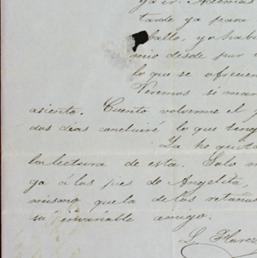 tarde ya para
ballo, ya habe
mio desde por
lo que se ofrecie
Veremos si man
asiento. Cuento volverme el
dos dias concluiré lo que teng
Ya ho quita
la lectura de esta. Solo
ga á los pies de Angelita,
mismo que la de los
su invariable amigo.
L. Florez